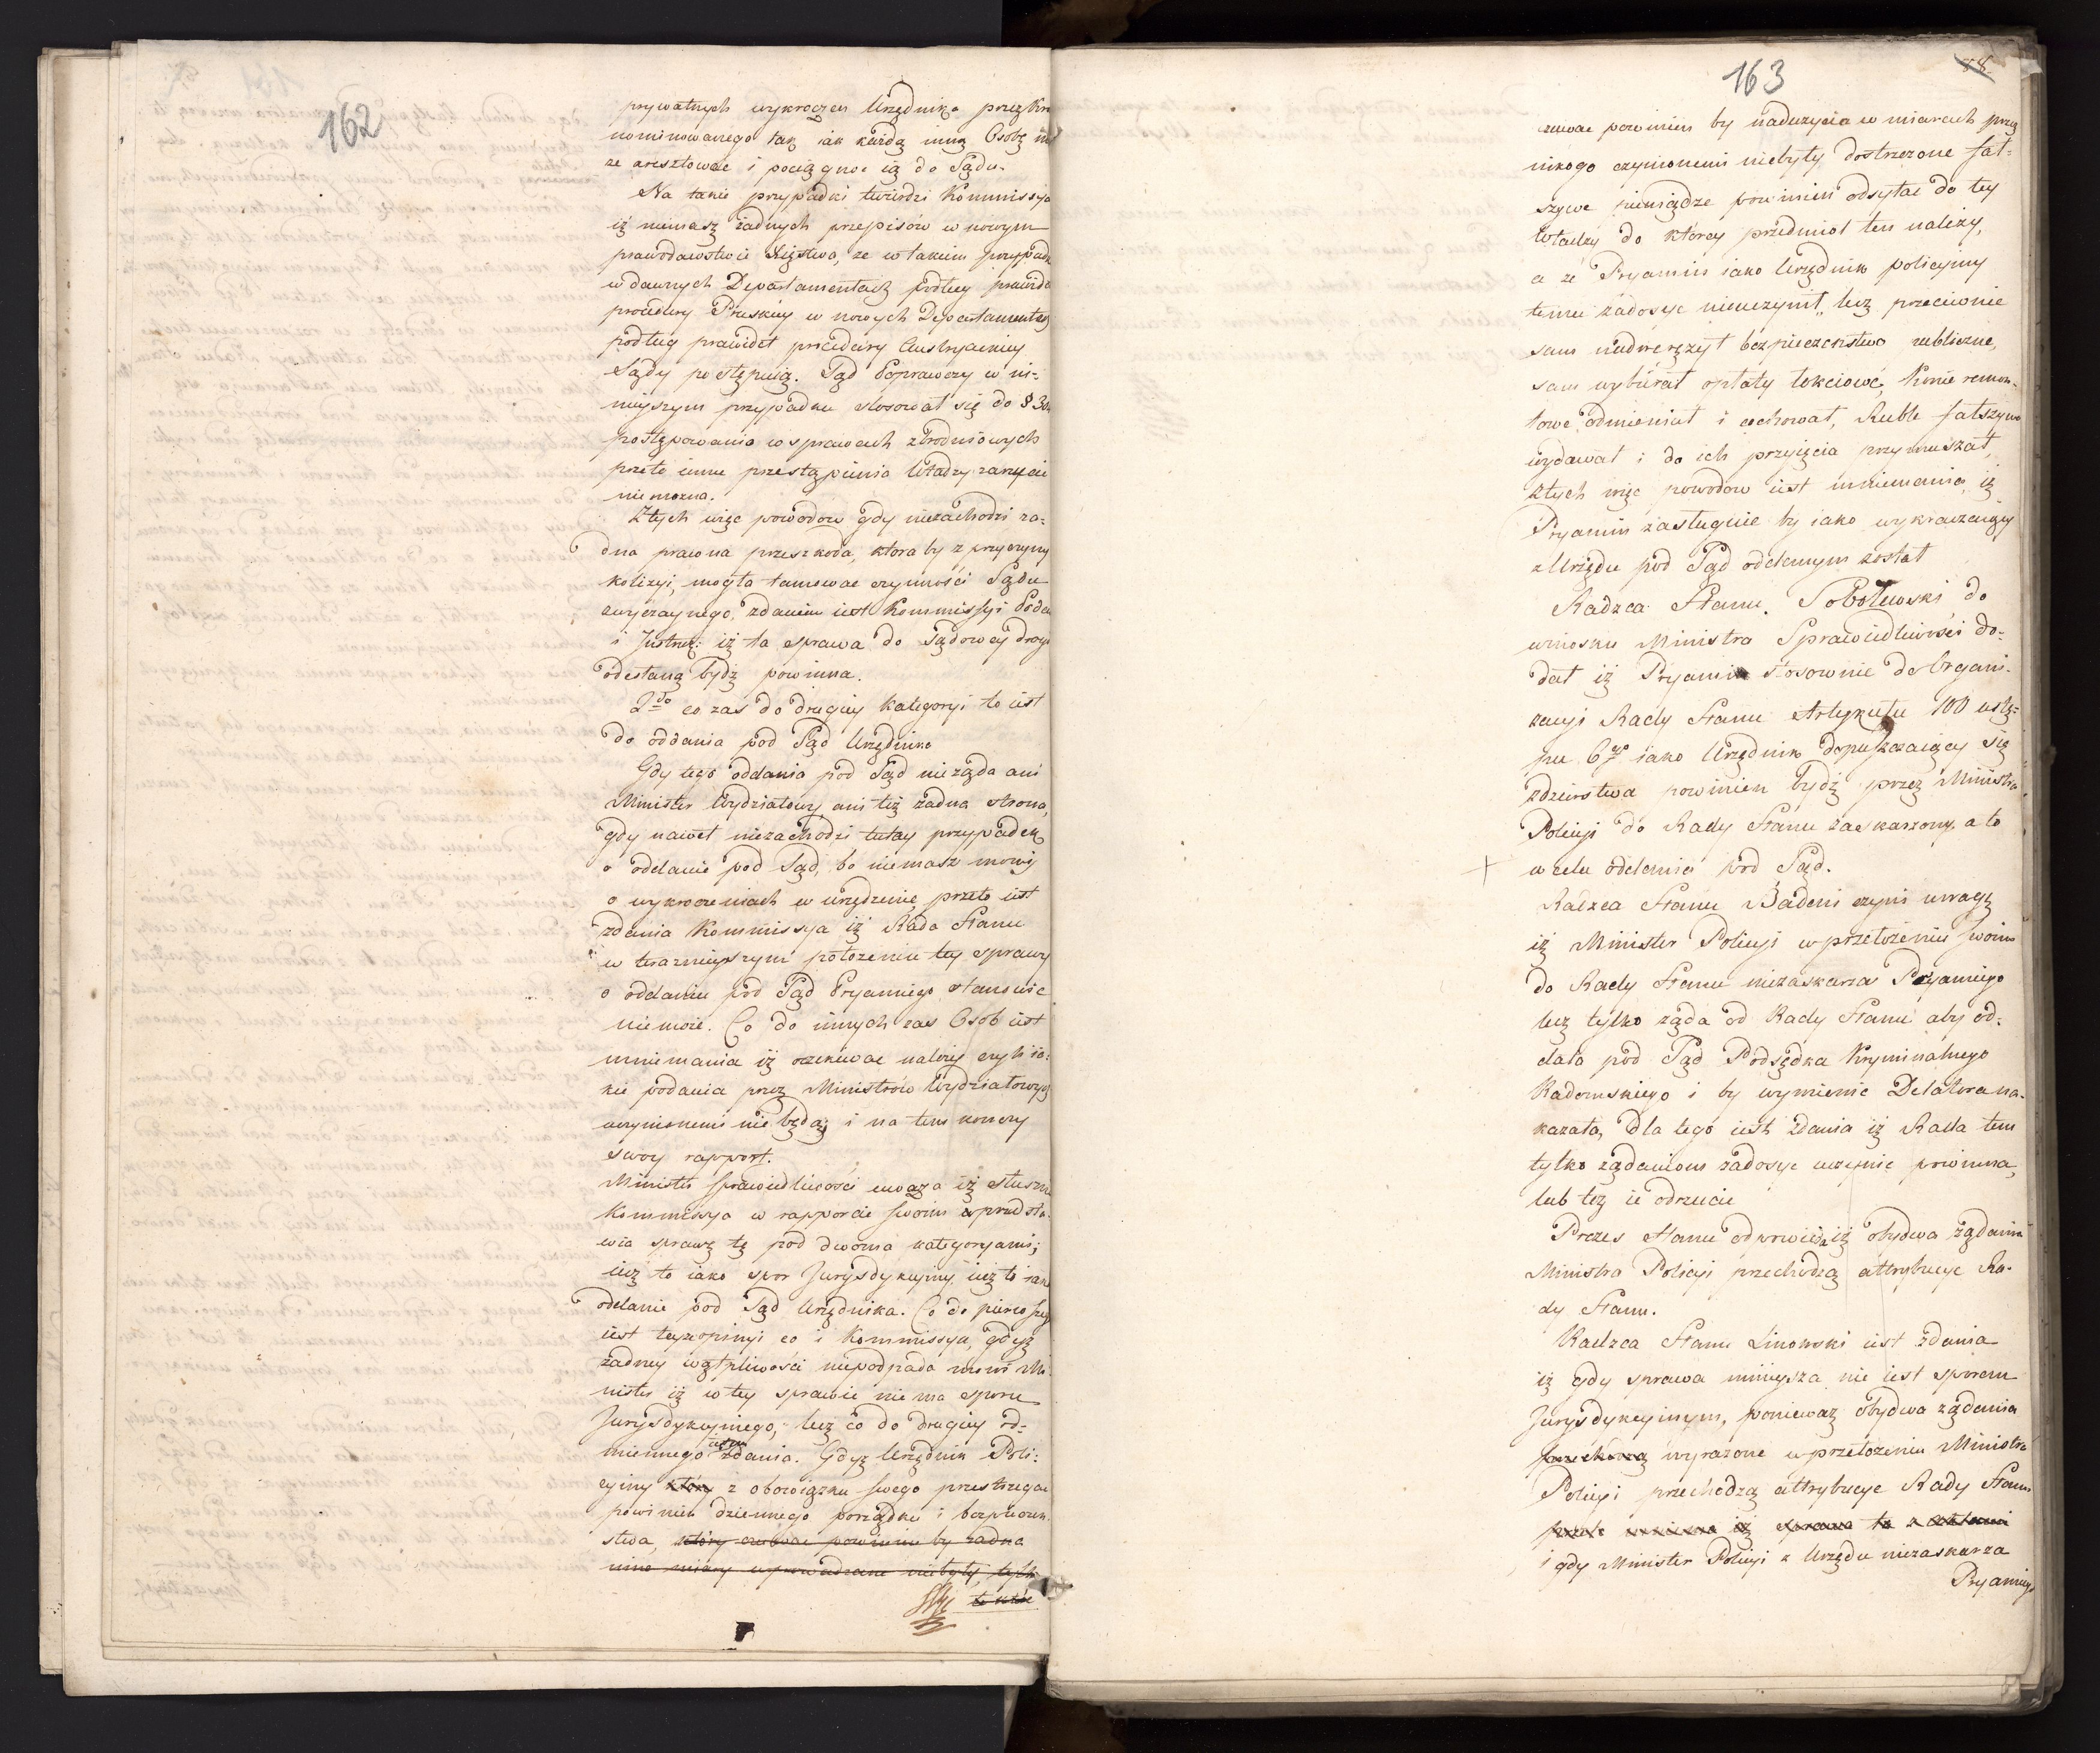 162
prywatnych wykroczen Urzędnika przez Kr
nominowanego tak iak każdą inną Osobę mo
ze aresztować i pociągnoc ią do Sądu.
Na takie przypadki twierdzi Kommissya
iż niemasz żadnych przepisów w nowym
prawodawstwie Xięstwa, ze w takim przypadk
w dawnych Departamentach podług prawideł
procedury Pruskiey w nowych Departamentach
podług prawideł procedury Austryackiey
Sądy postępuią. Sąd Poprawczy w ni-
nieyszym przypadku stosował się do § 30
postępowania w sprawach zbrodniowych
przeto iemu przestąpienia Władzy zarzucić
nie można.
Z tych więc powodów gdy niezachodzi ża-
dna prawna przeszkoda, ktora by z przyczyny
kolizyi, mogła tamować czynności Sądu
zwyczaynego, zdaniem iest Kommissyi Poda
i Instruk: iż ta sprawa do Sądowey drogi
odesłaną bydź powinna.
2do co zas do drugiey kategoryi to iest
do oddania pod Sąd Urzędnika
Gdy tego oddania pod Sąd nie ząda ani
Minister Wydziałowy, ani też żadna strona,
gdy nawet niezachodzi tutay przypadek
o oddanie pod Sąd, bo niemasz mowy
o wykroczeniach w urzędzenie, przeto iest
zdania Kommissya iż Rada Stanu
w teraznieyszym położeniu tey sprawy
o oddaniu pod Sąd Pryamiego stanowić
niemoże. Co do innych zas Osób iest
mniemania iż oczekiwać należy czyli ia-
kie podania przez Ministrów Wydziałowych
uczynionemi nie będą, i na tem konczy
swoy rapport.
Minister Sprawiedliwości uważa iż słuszni
Kommissya w rapporcie swoim przedsta-
wia sprawę tę pod dwoma kategoryami;
iuż to iako spor Jurysdykcyiny, iuż to iako
oddanie pod Sąd Urzędnika. Co do pierwszey
iest teyze opinyi co i Kommissya, gdyż
żadney wątpliwości niepodpada mowi Mi
nister iż w tey sprawie nie ma sporu
Jurysdykcyinego, lecz co do drugiey od-
miennego iestem zdania. Gdyż Urzędnik Poli-
cyiny który z obowiązku swego przestrzegac
powinien dziennego porządku i bezpieczen-
stwa, który czuwac powinien by żadna
inna miary wprowadzane niebyły, tych

163
88
czuwac powinien by nadużycia w miarach przez
nikogo czynionemi niebyły dostrzeżone fał-
szywe pieniądze powinien odsyłać do tey
Władzy do którey przedmiot ten należy,
a że Pryamin iako Urzędnik policyiny
temu zadosyc nieuczynił, lecz przeciwnie
sam nadwerężył bezpieczeństwo publiczne,
sam wybierał opłaty łokciowe, Konie remon-
towe odmieniał i cechował, Ruble fałszywe
wydawał i do ich przyięcia przymuszał,
Z tych więc powodow iest mniemania, iż
Pryamin zasługuie by iako wykraczaiący
z Urzędu pod Sąd oddanym został
Radzca Stanu Sobolewski do
wniosku Ministra Sprawiedliwości do-
dał iż Pryamin stosownie do Organi-
zacyi Rady Stanu Artykułu 100 ustę-
pu 6go iako Urzędnik dopuszczaiący się
zdzierstwa powinien bydź przez Ministra
Policyi do Rady Stanu zaskarzony, a to
w celu oddania pod Sąd.
Radzca Stanu Badeni czyni uwagę
iż Minister Policyi w przełożeniu swoim
do Rady Stanu niezaskarza Pryamiego
lecz tylko ząda od Rady Stanu aby od-
dała pod Sąd Podsędka Kryminalnego
Radomskiego i by wymienic Delatora na-
kazała, dla tego iest zdania iż Rada tem
tylko żądaniom zadosyc uczynic powinna,
lub też ie odrzucic
Prezes Stanu odpowiada iż obydwa żądania
Ministra Policyi przechodzą attrybucye Ra-
dy Stanu.
Radzca Stanu Linowski iest zdania
iż gdy sprawa ninieysza nie iest sporem
Jurysdykcyinym, ponieważ obydwa żądania
przechodzą wyrażone w przełożeniu Ministra
Policyi przechodzą attrybucye Rady Stanu
i gdy Minister Policyi z Urzędu niezaskarza
Pryamiego